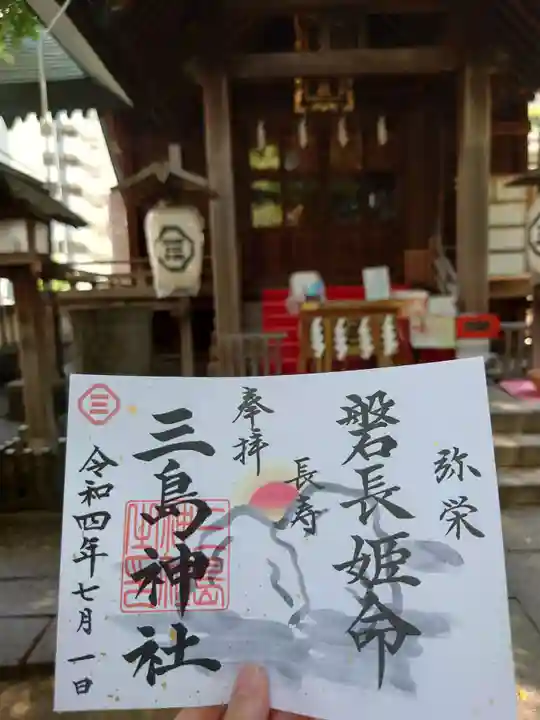 弥栄
磐長姫命
長寿
奉拝
三島神社
令和四年七月一日
三
三